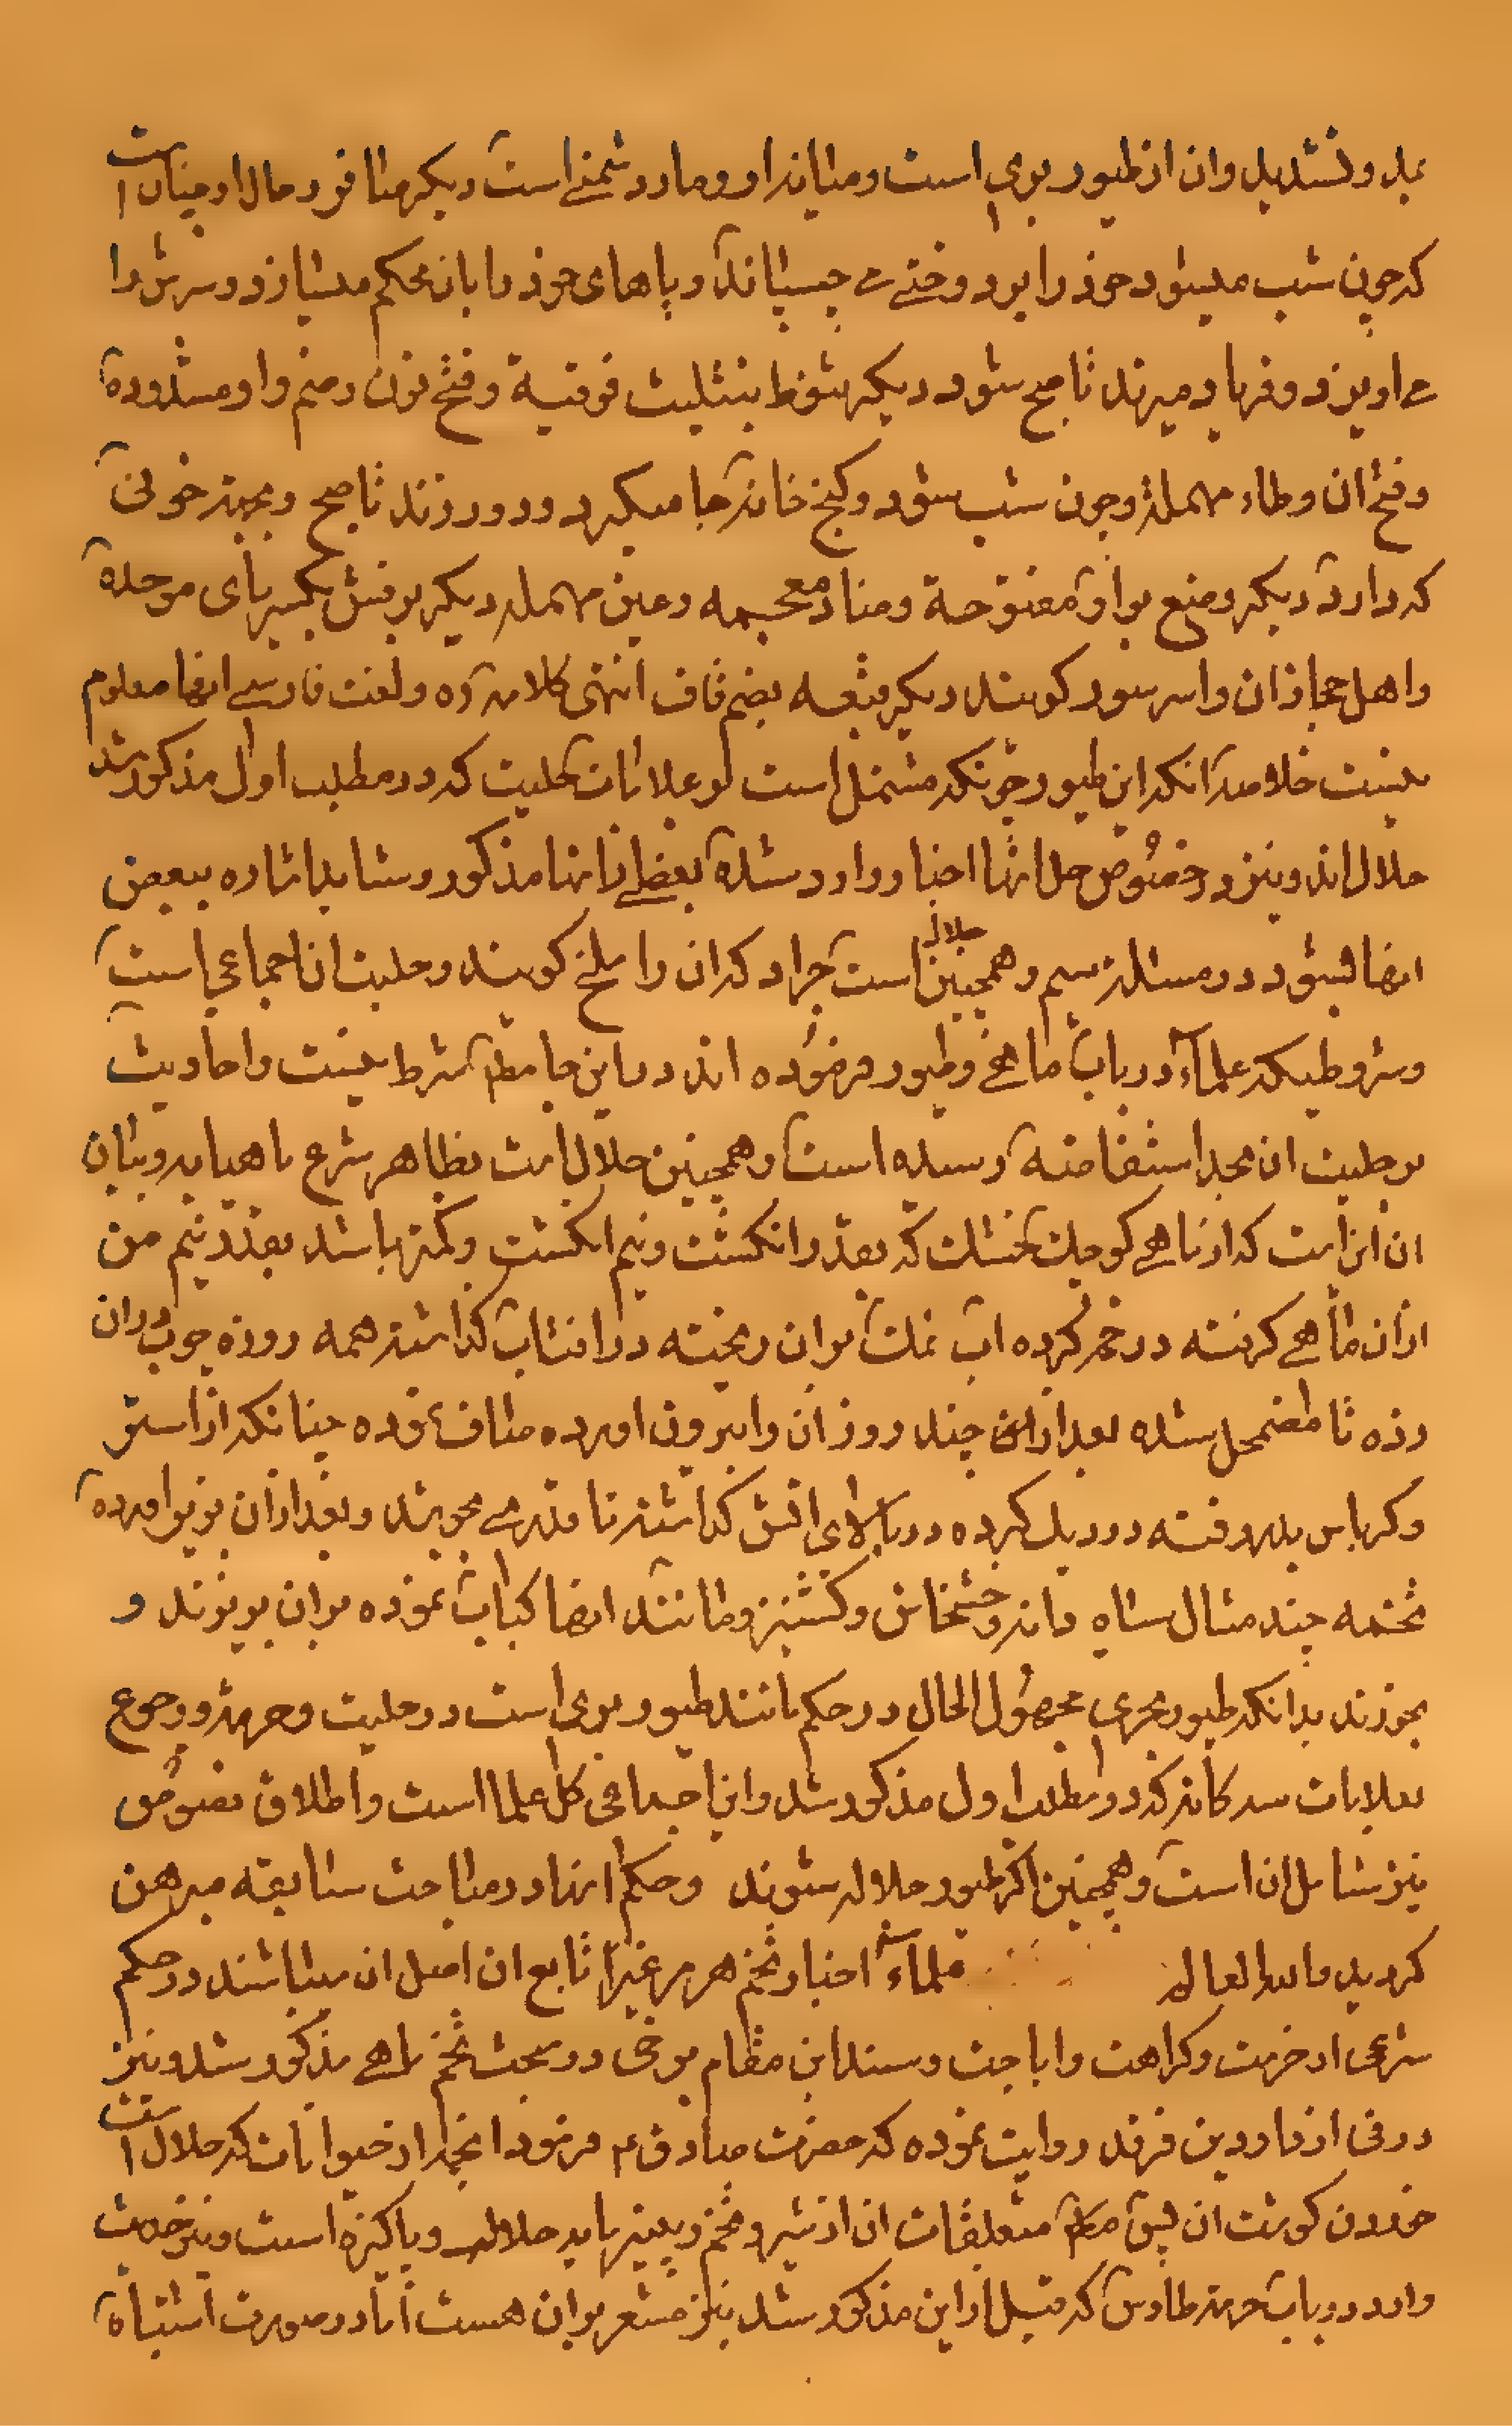 بمد و تشدید و ان از طیور بری است و میانه او و مار دشمنی است دیکر صافر و حال او چنان است
که چون شب میشود خود را بر درختی می چسپاند و پاهای خود را بان محکم میسازد و سرش را
می اویزد و فریاد میزند تا صبح شود دیکر تنوط بتثلیث فوقیة و فتح نون و ضم واو مشدوده
و فتح ان و طاء مهمله و چون شب شود و کنج خانه جا میکیرد و دور زند تا صبح و بجهة خوفی
که دارد دیکر وضع بواو مفتوحة و ضاد معجمه و عین مهمله دیکر برقش بکسر بای موحده
و اهل حجاز ان را سرسور کویند دیکر قبعه بضم قاف انتهی کلامه ره و لغت فارسی انها معلوم
نیست خلاصه انکه این طیور چونکه مشتمل است بر علامات حلیت که در مطلب اول مذکور شد
حلال اند و نیز در خصوص حل انها اخبار وارد شده بعضی از انها مذکور و شاید اشاره ببعض
انها بشود در مسئله سیم و همچنین حلال است جراد که ان را ملخ کویند و حلیت ان اجماعی است
و شروطیکه علماء در باب ماهی و طیور فرموده اند در این جا مطم شرط نیست و احادیث
بر حلیت ان بحد استفاضه رسیده است و همچنین حلال است بظاهر شرع ماهیابه و بیان
ان این است که از ماهی کوچک خشک که بقدر انکشت و نیم انکشت و کمتر باشد بقدر نیم من
از ان ماهی کرفته در خم کرده اب نمک بر ان ریخته در افتاب کذاشته همه روزه چوب در ان
زده تا مضمحل شده بعد از ان چند روز ان را بیرون اورده صاف نموده چنانکه از استر
و کرباس بدر رفته در دیک کرده در بالای اتش کذاشته تا قدری بجوشد و بعد از ان بزیر اورده
تخمه چند مثال سیاه دانه و خشخاش و کشنیز و مانند انها کباب نموده بر ان بریزند و
بخورند بدانکه طیور بحری مجهول الحال در حکم مانند طیور بری است در حلیت و حرمة و رجوع
بعلامات سه کانه که در مطلب اول مذکور شد و این اجماعی کل علما است و اطلاق نصوص
نیز شامل ان است و همچنین اکر طیور جلاله شوند و حکم انها در مباحث سابقه مبرهن
کردید و الله العالم علماء اخبار تخم هر مرغیرا تابع ان اصل ان میباشند در حکم
شرعی از حرمت و کراهت و اباحت و سند این مقام برخی در بحث تخم ماهی مذکور شد و نیز
در فی از داود بن فرقد روایت نموده که حضرت صادق ع فرمود انچه از حیوانات که حلال است
خوردن کوشت ان پس مطم متعلقات ان از شیر و تخم و پنیر مایه حلال و پاکیزه است و نیز حدیث
وارد در باب حرمة طاوس که قبل از این مذکور شد نیز مشعر بر ان هست اما در صورت اشتباه